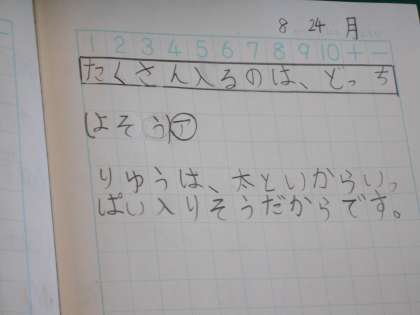 8 24 月
1 2 3 4 5 6 7 8 9 10 + −
たくさん入るのは、どっち
(よそう)ア
りゅうは、太といからいっ
ぱい入りそうだからです。